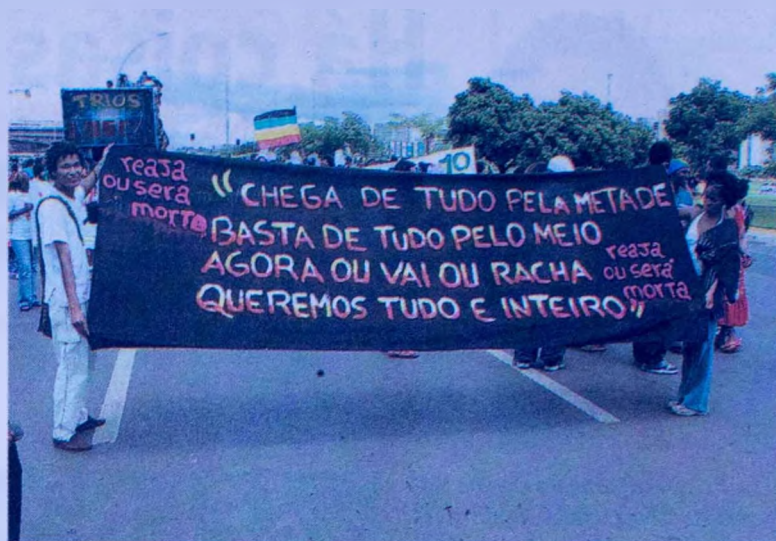 TRIOS
10
reaja
ou será
morta
"CHEGA DE TUDO PELA METADE
BASTA DE TUDO PELO MEIO
AGORA OU VAI OU RACHA
QUEREMOS TUDO E INTEIRO"
reaja
ou será
morta